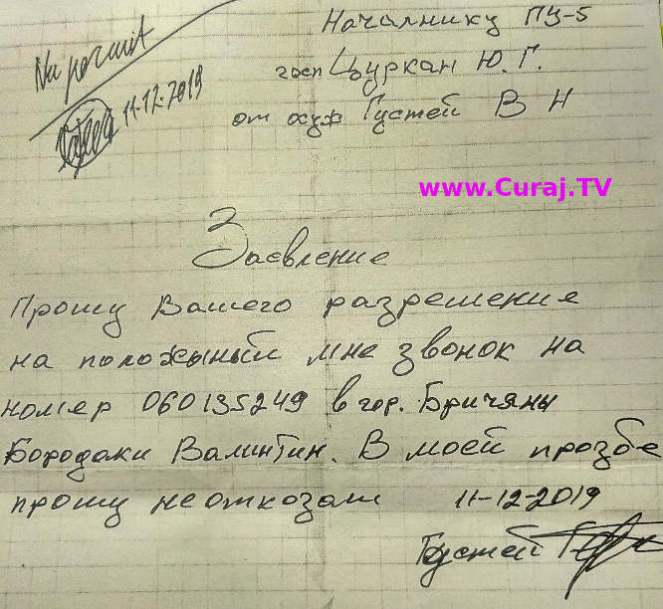 Nu permit
11-12-2019
Началнику ПУ-5
госп Цуркан Ю. Г.
от осуж Густей В Н
www.Curaj.TV
Заевление
Прошу Вашего разрешение
на положыный мне звонок на
номер 060135249 в гор. Бричяны
Бородаки Валинтин. В моей прозбе
прошу неоткозат 11-12-2019
Густей